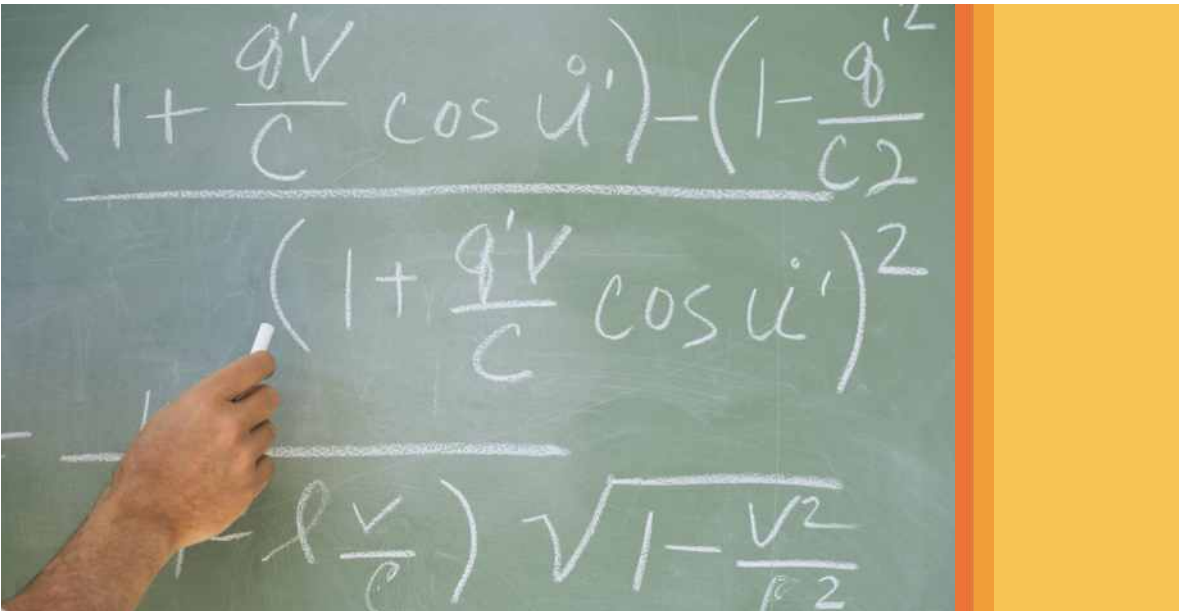 (1 + q'v/C cos ů') - (1 - q'²/C2
(1 + q'v/C cos u̇')²
l v/C) √(1 - V2/C2)